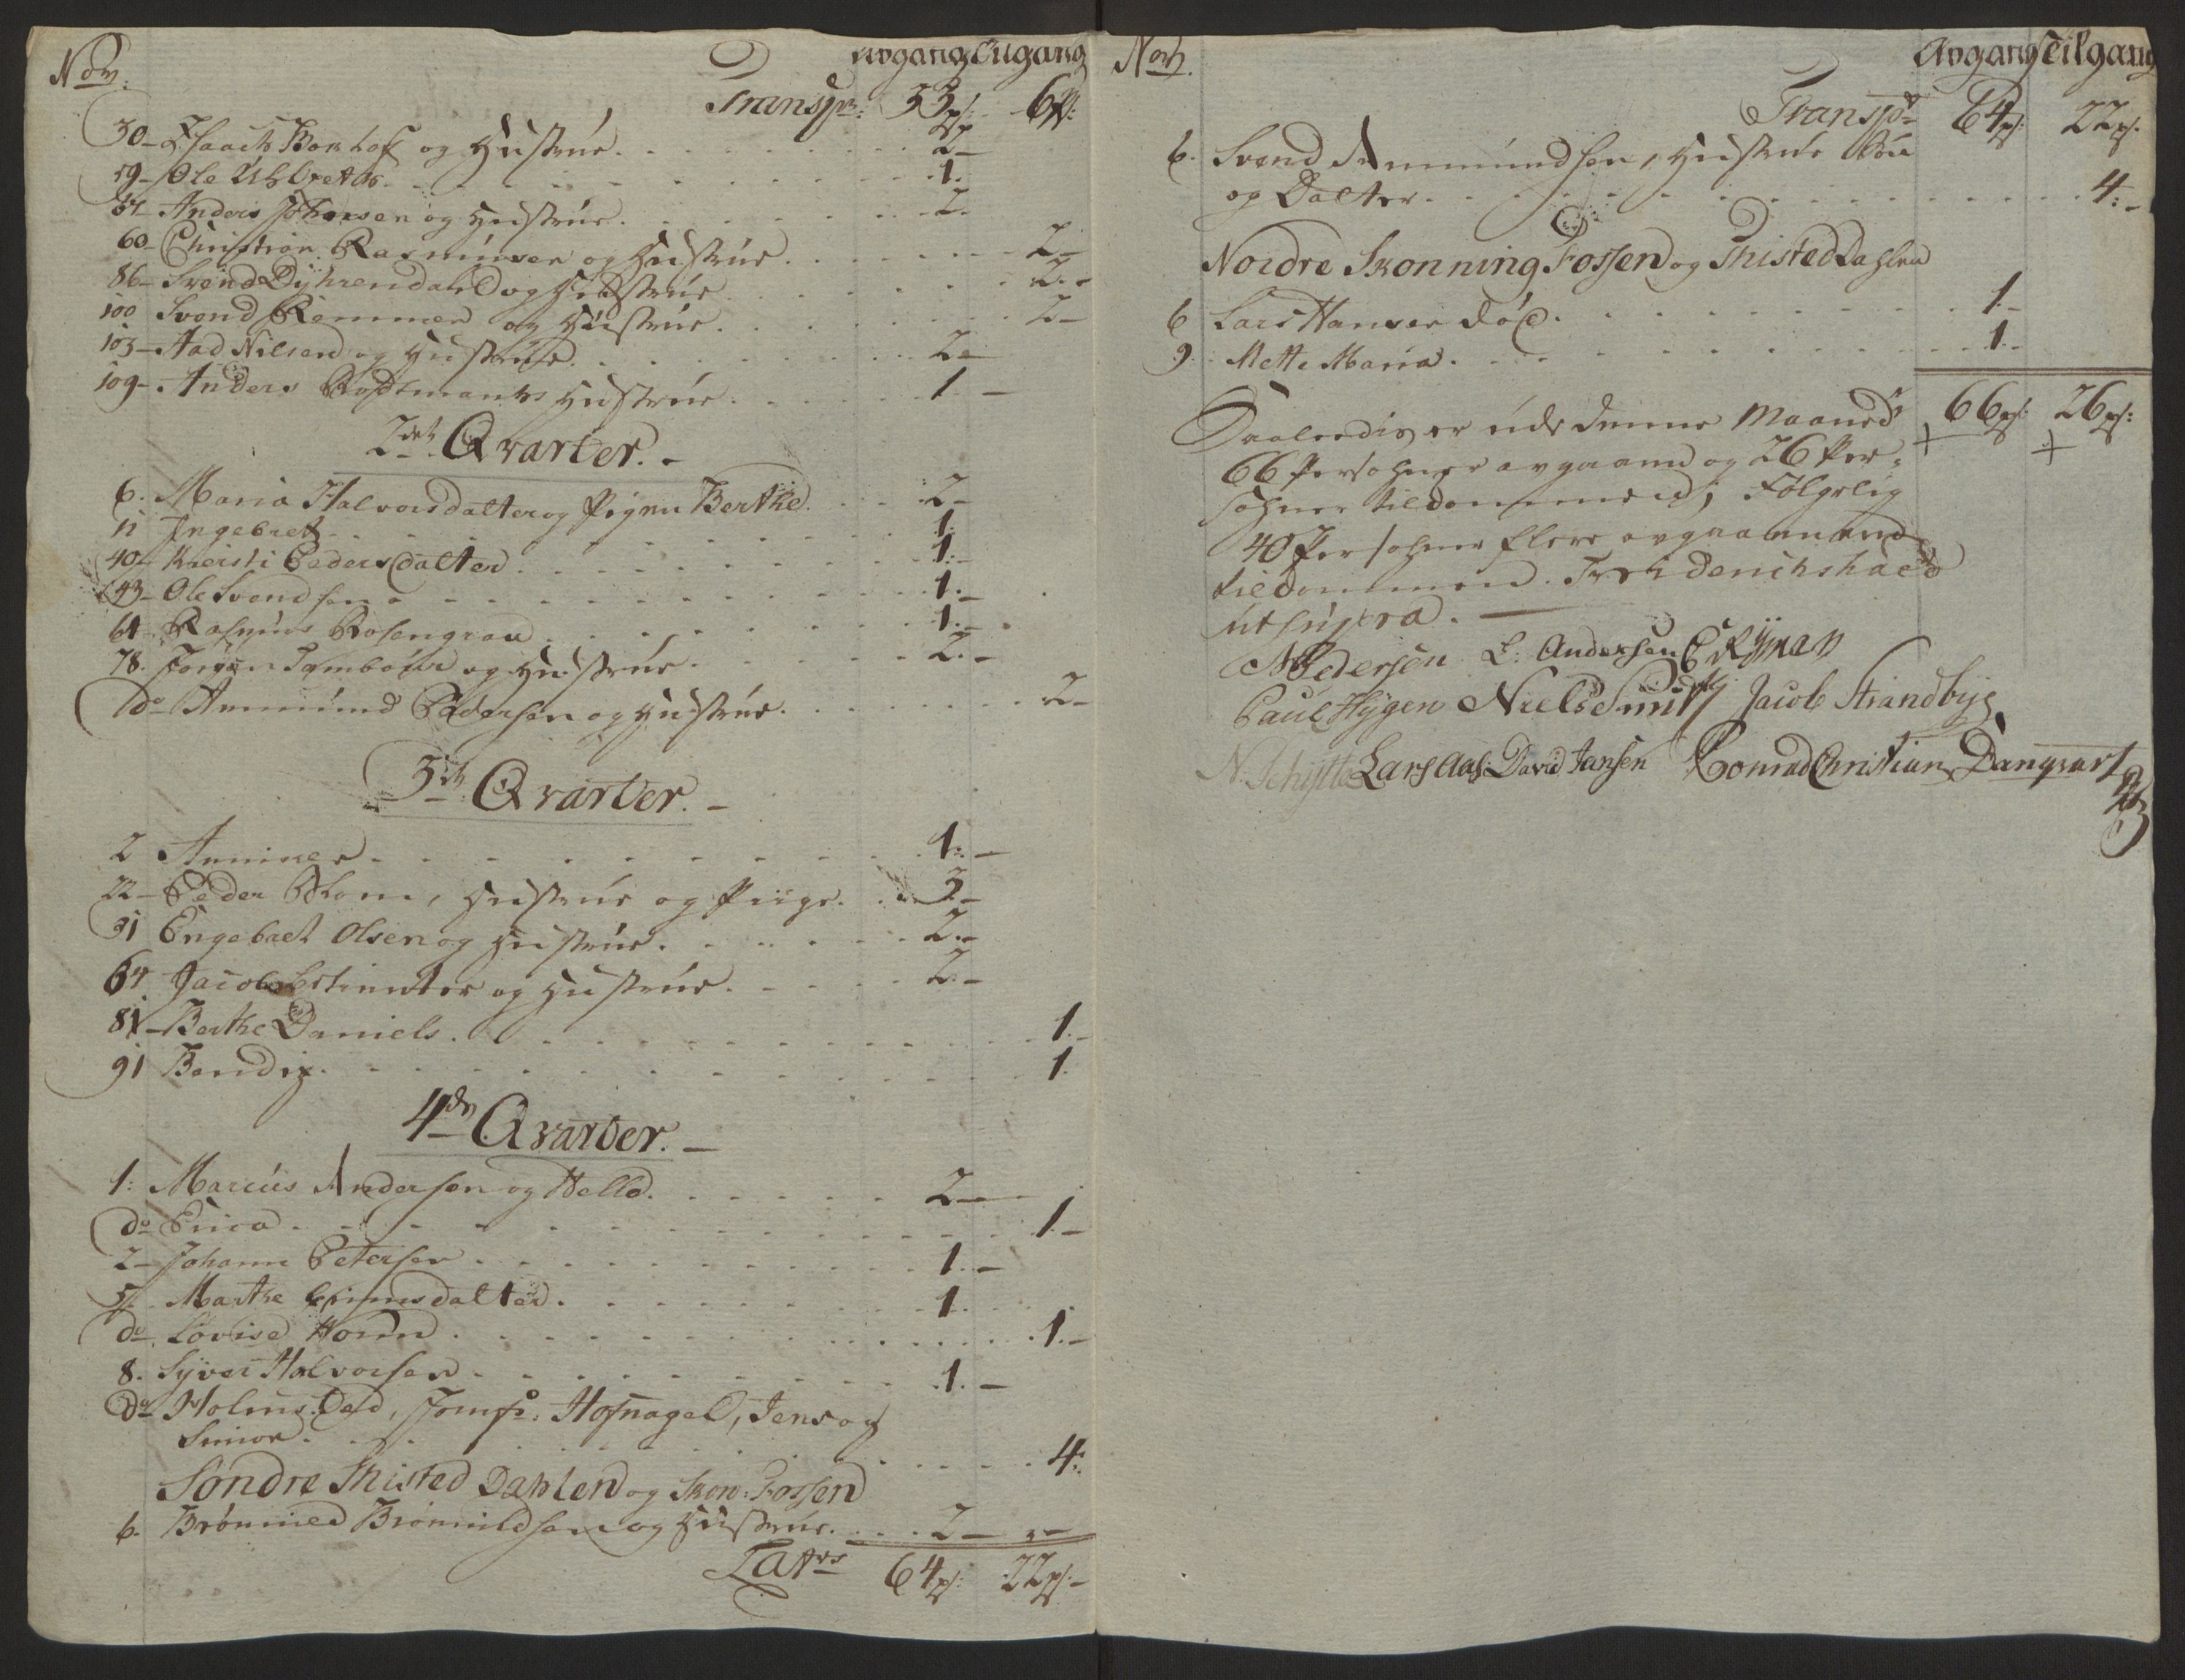 Nom: Avgang Tilgang
Transpr: 33 ps: 6 ps:
30 - Isaach Borhof og Hustrue 2 -
59 - Ole 1.
54 - Anders Johansen og Hustrue 2.
60 - Christian Rasmusen og Hustrue 2 -
86 - Svend Dyhrendahl og Hustrue 2. -
100 Svend Remmen og Hustrue 2 -
103 - Aad Nilsen og Hustrue 2 -
109 - Anders Hustrue 1 -
2den Qvarter. -
6. Maria Halvorsdatter og Pigen Berthe 2 -
11 Ingebret 1:
40 - Kiersti Pedersdatter 1. -
43 - Ole Svendsen 1. -
61 - Rasmus Rosengran 1. -
78. Jørgen Tambour og Hustrue 2. -
do Ammund Pedersen og Hustrue 2 -
3die Qvarter. -
2 Anniken 1: -
22 - Peder Hustrue og Piige 3 -
31 Engebret Olsen og Hustrue 2. -
64 Jacob og Hustrue 2. -
81 - Berthe Daniels 1. -
91 Bendix 1.
4de Qvarter. -
1: Marcus Andersen og Helle 2 -
do Erica 1 -
2 - Johann Petersen 1. -
5 - Marthe datter 1.
do Lovise Horn 1. -
8. Syver Halvorsen 1. -
do Holms Jomfr: Hofnagel, Jens og
Simon 4:
Søndre Thisted Dahlen og Skon: Fossen
6. Brønnild Brønnildsen og Hustrue 2 -
Latus 64 ps: 22 ps: -
Nom. Avgang Tilgang
Transpr 64 ps: 22 ps.
6. Svend Ammundsen, Hustrue Søn
og Datter 4: -
Nordre Skonning Fossen og Thisted Dahlen
6 Lars Hansen død 1 -
9. Mette Maria 1 -
66 ps: 26 ps:
Saaledis er udi denne Maaned
66 Persohner avgaaend og 26 Per-
sohner tilkommend, Følgelig
40 Persohner flere avgaaen end
tilkommen. Friderichshald
ut supra.
N Pedersen L: Andersen E Ryman
Paul Hygen Niels Smitt Jacob Strandbye
N. Schytte Lars Aas: David Jansen Conrad Christian Danqvart